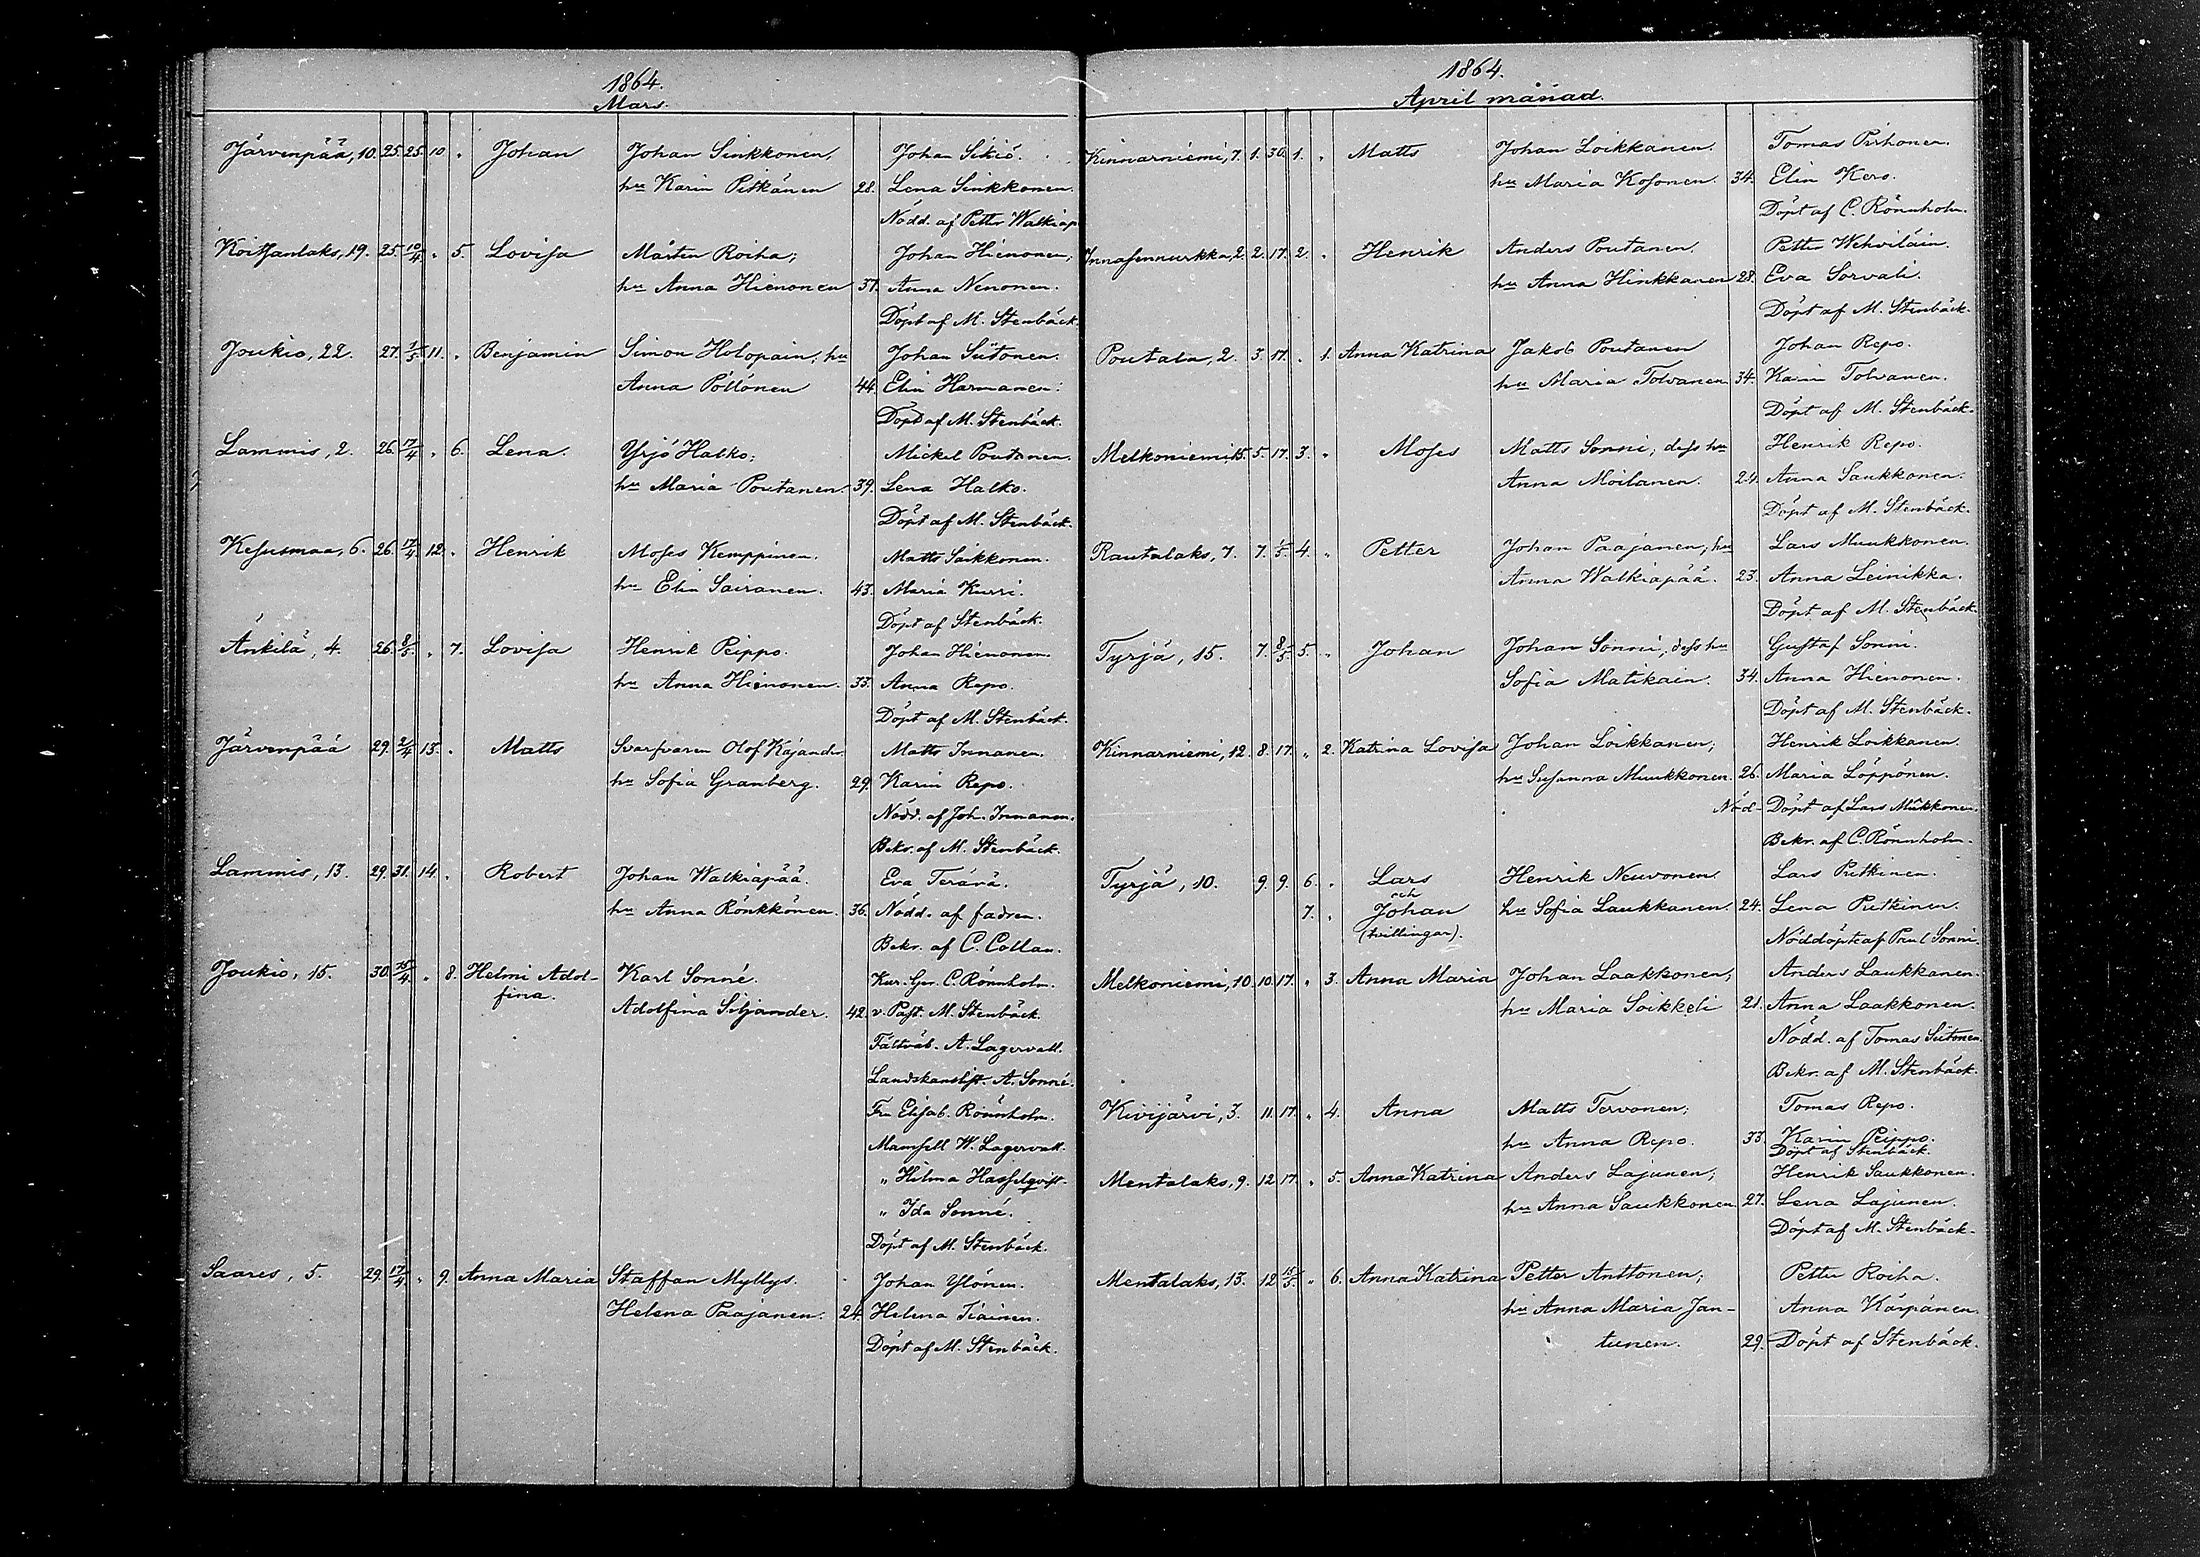 1864.
Mars.
Järvenpää, 10. 25. 25. 10 " Johan Johan Sinkkonen, Johan Sikiö.
hu Karin Pitkänen 28. Lena Sinkkonen.
Nödd. af Petter Walkiap
Koitsanlaks, 19. 25. 10/4 " 5. Lovisa Mårten Roiha; Johan Hienonen,
hu Anna Hienonen 37. Anna Nenonen.
Döpt af M. Stenbäck.
Joukio, 22. 27. 1/5 11. " Benjamin Simon Holopain, hu Johan Suitonen.
Anna Pöllönen 44. Elin Harmanen.
Döpt af M. Stenbäck.
Lammis, 2. 26. 17/4 " 6. Lena. Yrjö Halko; Mickel Poutanen.
hu Maria Poutanen. 39. Lena Halko.
Döpt af M. Stenbäck.
Kesusmaa, 6. 26. 17/4 12. " Henrik Moses Kemppinen. Matts Saikkonen.
hu Elin Sairanen. 43. Maria Kurri.
Döpt af Stenbäck.
Änkilä, 4. 26. 8/5. " 7. Lovisa Henrik Peippo. Johan Hienonen.
hu Anna Hienonen. 33. Anna Repo.
Döpt af M. Stenbäck.
Järvenpää 29. 2/4 13. " Matts Svarfvaren Olof Kajand. Matts Innanen.
hu Sofia Granberg. 29. Karin Repo.
Nödd. af Joh. Innanen.
Bekr. af M. Stenbäck.
Lammis, 13. 29. 31. 14. " Robert Johan Walkiapää. Eva Terävä.
hu Anna Rönkkönen. 36. Nödd. af fadren.
Bekr. af C. Collan.
Joukio, 15. 30. 15/4. " 8. Helmi Adol- Karl Sonné. C. Rönnholm.
fina. Adolfina Siljander. 42. v. Past. M. Stenbäck.
Fältväb. A. Lagervall.
Landskanslist. A. Sonné.
Fru Elisab. Rönnholm.
Mamsell W. Lagervall.
" Hilma Hasselqvist.
" Ida Sonné.
Döpt af M. Stenbäck.
Saares, 5. 29. 17/4 " 9. Anna Maria Staffan Myllys. Johan Ylönen.
Helena Paajanen. 24. Helena Tiainen.
Döpt af M. Stenbäck.
1864.
April månad.
Kinnarniemi, 7. 1. 30. 1. " Matts Johan Loikkanen. Tomas Pirhonen.
hu Maria Kosonen. 34. Elin Kero.
Döpt af C. Rönnholm.
Innasennurkka, 2. 2. 17. 2. " Henrik Anders Poutanen. Petter Wehviläin.
hu Anna Hinkkanen 28. Eva Sorvali.
Döpt af M. Stenbäck.
Poutala, 2. 3. 17. " 1. Anna Katrina Jakob Poutanen Johan Repo.
hu Maria Tolvanen 34. Karin Tolvanen.
Döpt af M. Stenbäck.
Melkoniemi, 15. 5. 17. 3. " Moses Matts Sonni; dess hu Henrik Repo.
Anna Moilanen. 24. Anna Saukkonen.
Döpt af M. Stenbäck.
Rautalaks, 7. 7. 1/5 4. " Petter Johan Paajanen; hu Lars Muukkonen.
Anna Walkiapää. 23. Anna Leinikka.
Döpt af M. Stenbäck.
Tyrjä, 15. 7. 8/5 5. " Johan Johan Sonni, dess hu Gustaf Sonni.
Sofia Matikain. 34. Anna Hienonen.
Döpt af M. Stenbäck.
Kinnarniemi, 12. 8. 17. " 2. Katrina Lovisa Johan Loikkanen; Henrik Loikkanen.
hu Susanna Muukkonen. 26. Maria Löppönen.
Nöd- Döpt af Lars Mukkonen.
Bekr. af C. Rönnholm.
Tyrjä, 10. 9. 9. 6. " Lars Henrik Neuvonen Lars Putkinen.
och
7. " Johan hu Sofia Laukkanen. 24. Lena Putkinen.
(tvillingar). Nöddöpt af Paul Sonni.
Melkoniemi, 10. 10. 17. " 3. Anna Maria Johan Laakkonen; Anders Laukkanen.
hu Maria Soikkeli 21. Anna Laakkonen.
Nödd. af Tomas Suitonen.
Bekr. af M. Stenbäck.
Kivijärvi, 3. 11. 17. " 4. Anna Matts Tervonen; Tomas Repo.
hu Anna Repo. 33. Karin Peippo.
Döpt af Stenbäck.
Mentalaks, 9. 12. 17. " 5. Anna Katrina Anders Lajunen; Henrik Saukkonen.
hu Anna Saukkonen. 27. Lena Lajunen.
Döpt af M. Stenbäck.
Mentalaks, 13. 12. 15/5. " 6. Anna Katrina Petter Anttonen; Petter Roiha.
hu Anna Maria Jan- Anna Kärpänen.
tunen. 29. Döpt af Stenbäck.